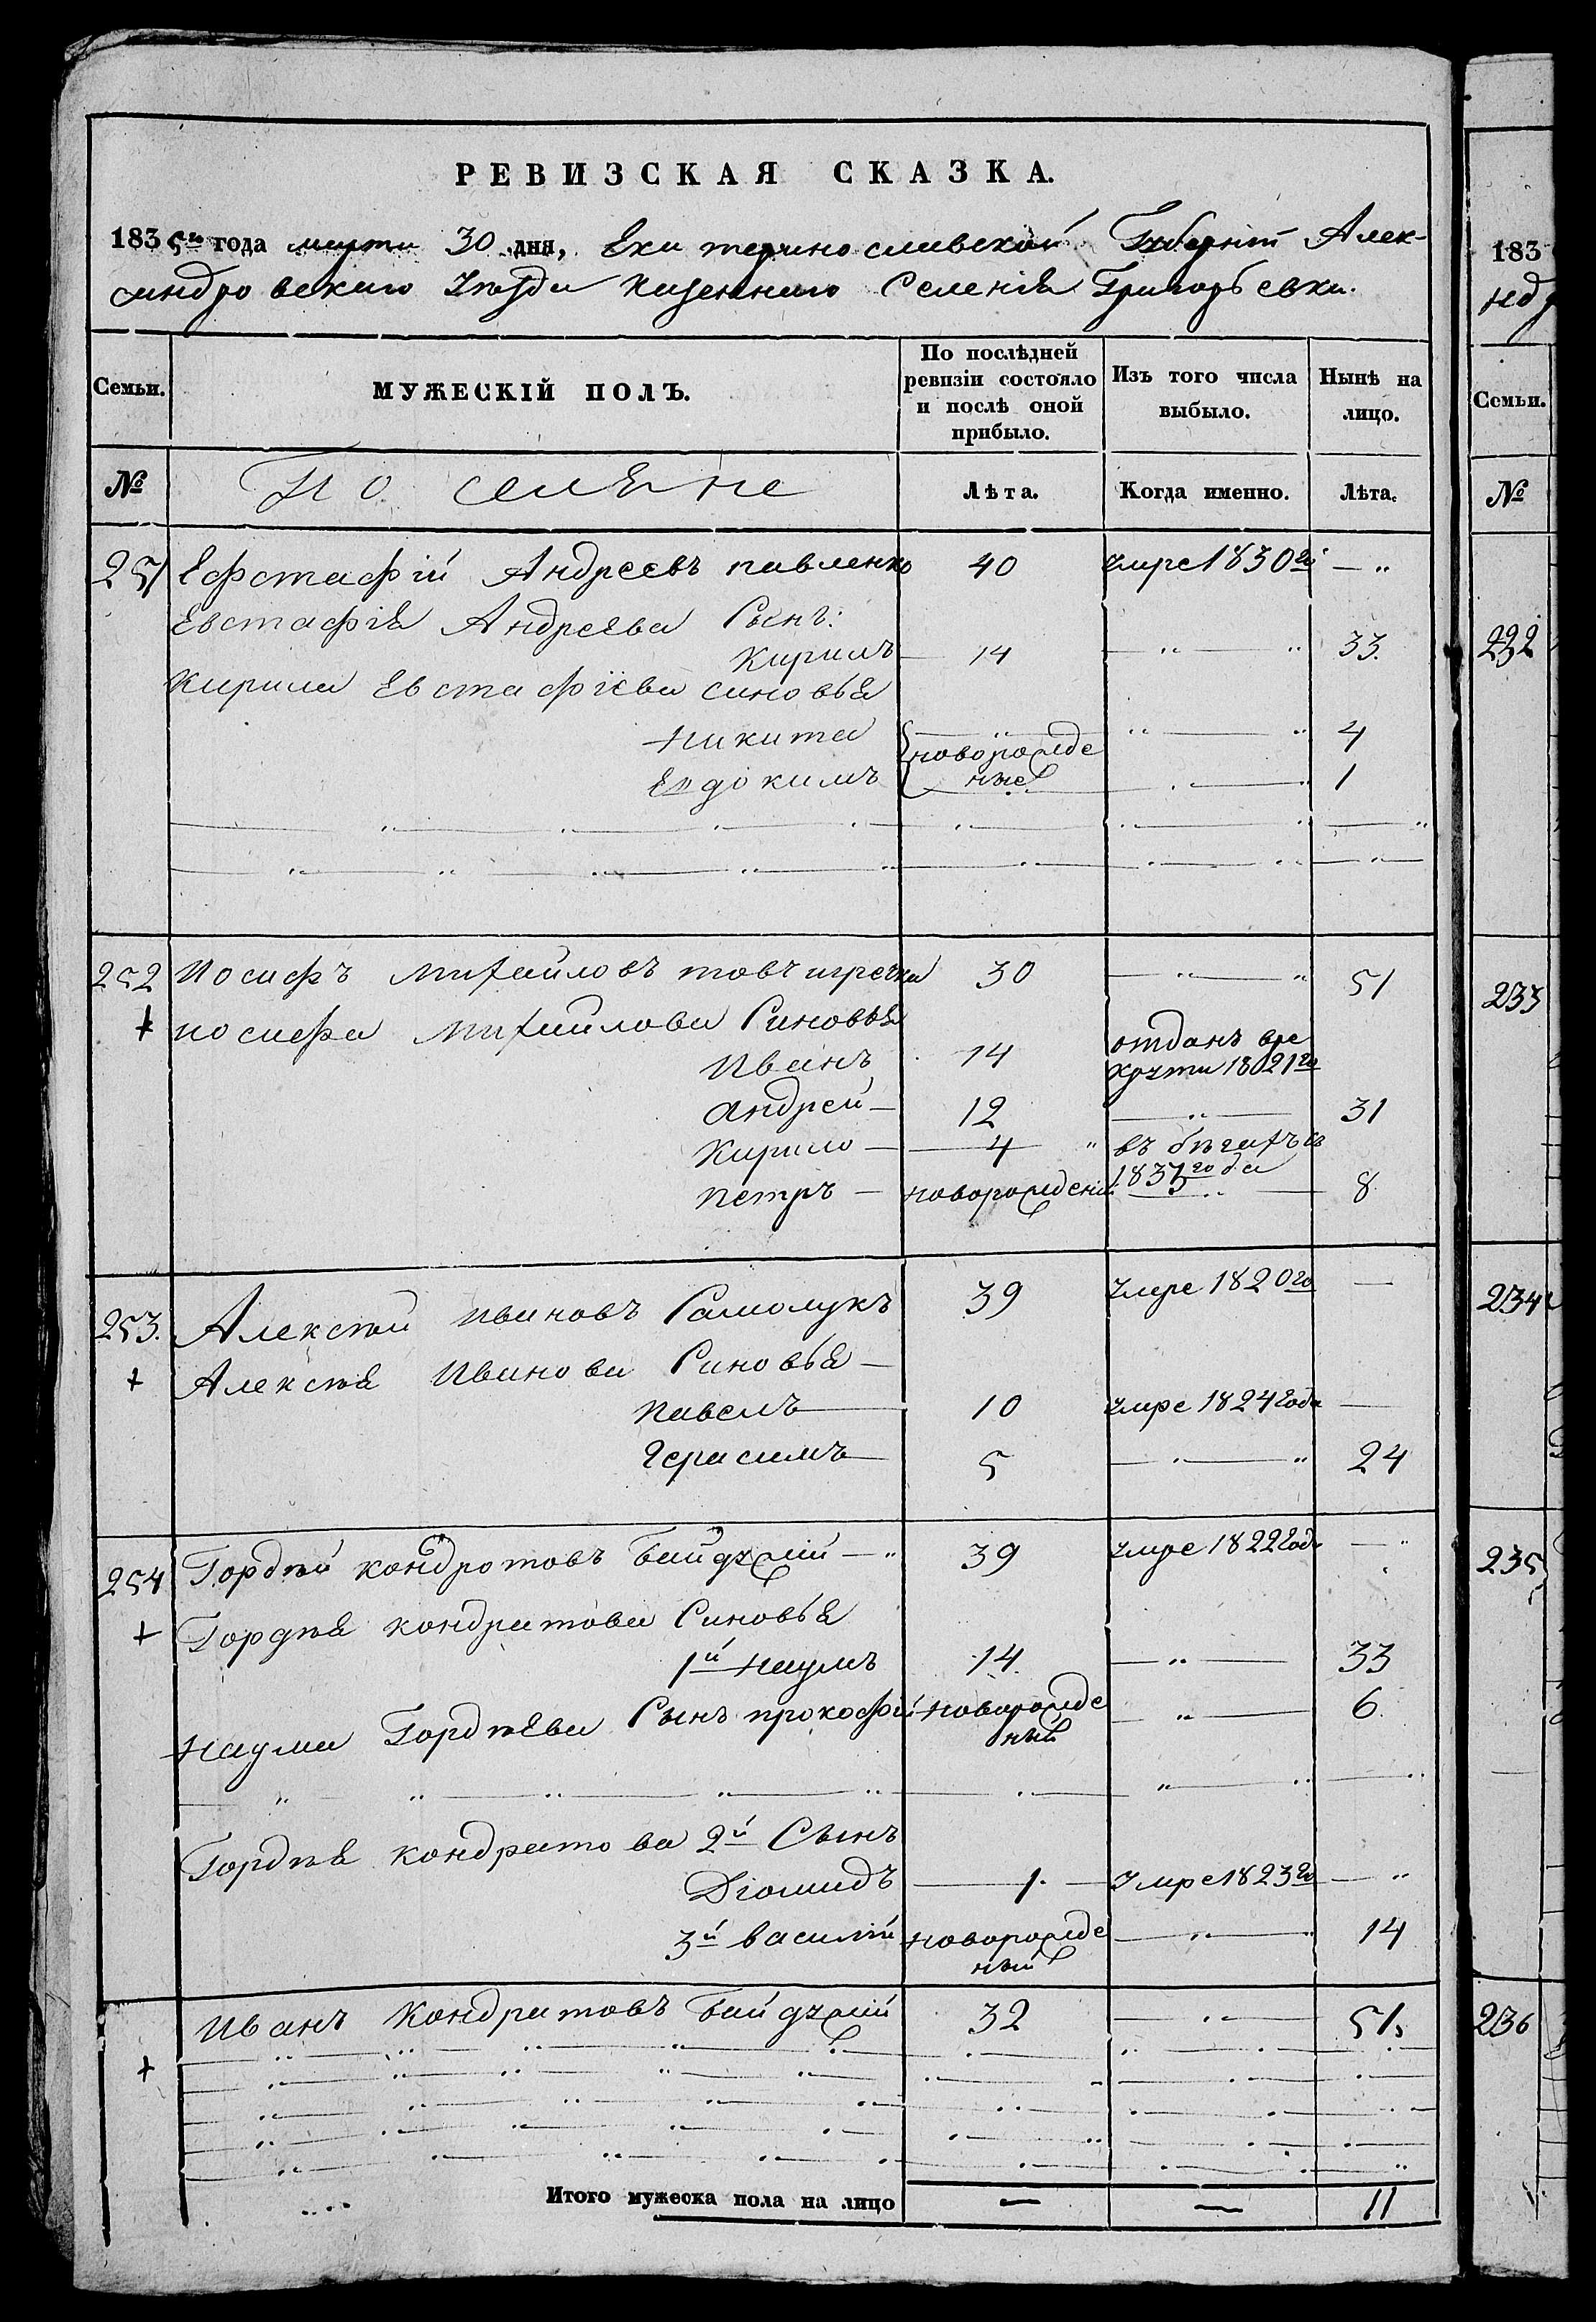 РЕВИЗСКАЯ СКАЗКА.
1835го года марта 30 дня, Екатеринославской Губерніи Алек-
сандровскаго Уѣзда Казеннаго Селенія Григорьевки.
Семьи. МУЖЕСКІЙ ПОЛЪ. По послѣдней ревизіи состояло и послѣ оной прибыло. Изъ того числа выбыло. Нынѣ на лицо.
№ Лѣта. Когда именно. Лѣта.
251 Ефстафій Андреевъ павленко 40 умре 1830го — „
Евстафія Андреева Сынъ:
Кирилъ 14 33.
Кирила Евстафіева синовья
Никита 4
новорожде
ные
Евдокимъ 1
252 Иосифъ Михайловъ товчигречка 30 51
иосифа Михайлова Синовья
Иванъ 14 отданъ вре
круты 1821го
андрей 12 31
Кирило 4 въ бѣгахъ съ
1833года
петръ новорожденій 8
253. Алексѣй Ивановъ Самолукъ 39 умре 1820го —
Алексѣя Иванова Синовья
павелъ 10 умре 1824года —
Герасимъ 5 24
254 Гордѣй кондротовъ байдужій 39 умре 1822года —
Гордѣя кондратова Синовья
1й Наумъ 14. 33
Наума Гордѣева Сынъ прокофій новорожде 6.
ный
Гордѣя кондратова 2й Сынъ
Діомидъ 1. умре 1823го —
3й василій новорожде 14
ный
Иванъ Кондратовъ байдужій 32 51.
Итого мужеска пола на лицо — — 11
183
Семьи.
№
232
233
234
235
236